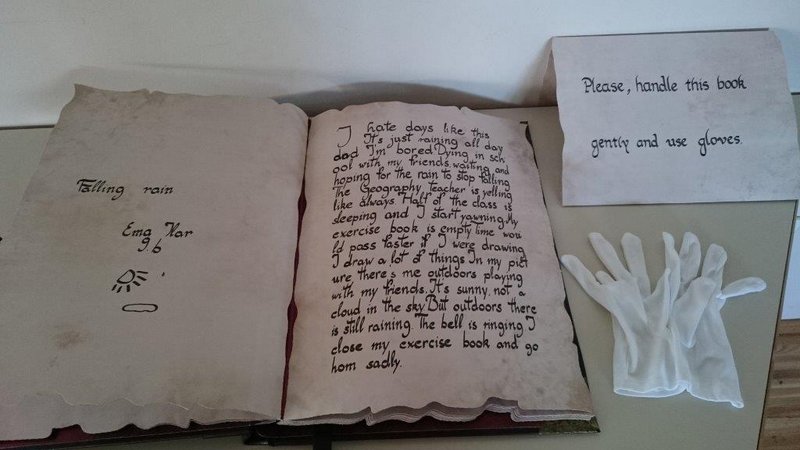 Falling rain
Ema Nar
9.b
I hate days like this
It's just raining all day
dad I'm bored. Dying in sch
ool with my friends, waiting and
hoping for the rain to stop falling
The Geography teacher is yelling
like always. Half of the class is
sleeping and I start yawning. My
exercise book is empty. Time wou
ld pass faster if I were drawing
I draw a lot of things. In my pict
ure, there's me outdoors playing
with my friends. It's sunny, not a
cloud in the sky. But outdoors there
is still raining. The bell is ringing. I
close my exercise book and go
hom sadly.
Please, handle this book
gently and use gloves.